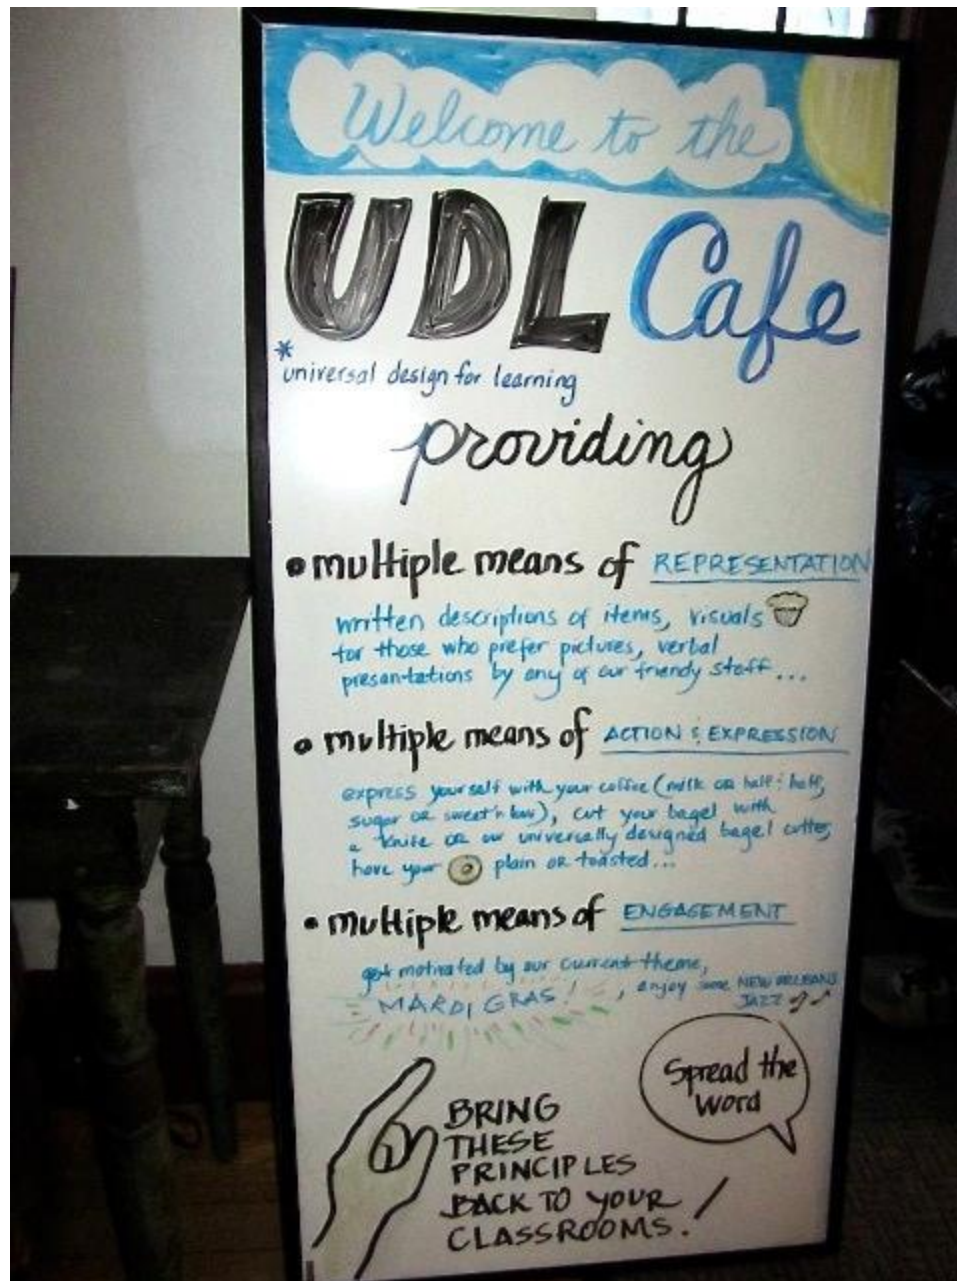 Welcome to the
UDL Cafe
*universal design for learning
providing
• multiple means of REPRESENTATION
written descriptions of items, visuals
for those who prefer pictures, verbal
presentations by any of our friendly staff...
• multiple means of ACTION & EXPRESSION
express yourself with your coffee (milk or half & half,
sugar or sweet'n low), cut your bagel with
a knife or our universally designed bagel cutter,
have your plain or toasted...
• multiple means of ENGAGEMENT
get motivated by our current theme,
MARDI GRAS!, enjoy some NEW ORLEANS
JAZZ
Spread the
word
BRING
THESE
PRINCIPLES
BACK TO YOUR
CLASSROOMS!